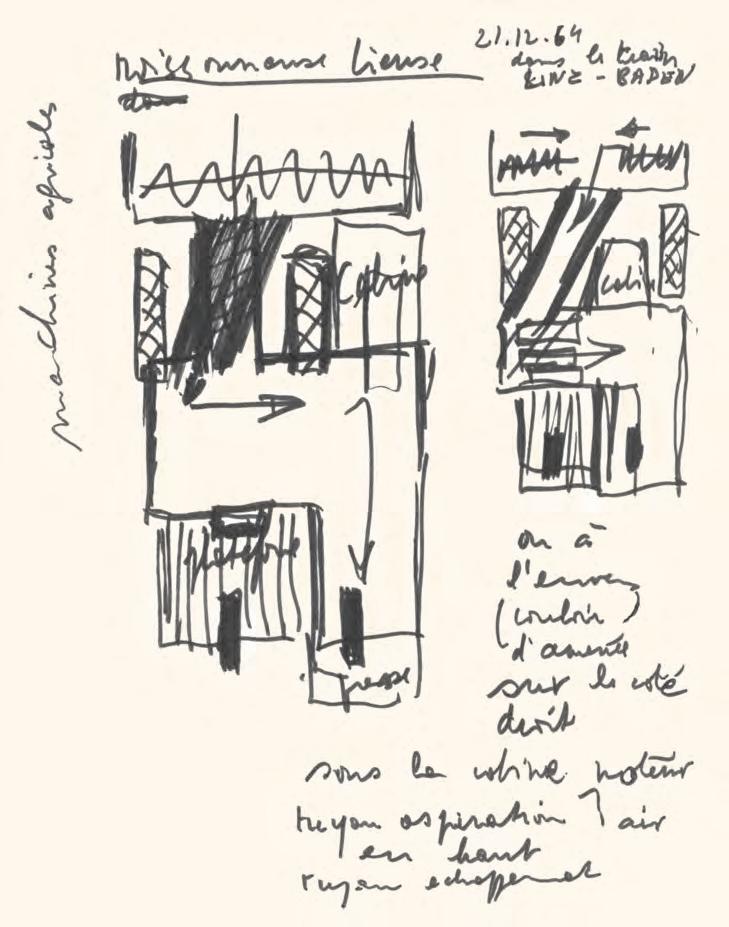 moissonneuse lieuse
21.12.64
dans le train
LINZ - BADEN
machines agricoles
Cabine
cabin
plateforme
presse
ou à
l'envers
(couloir)
d'amenée
sur le côté
droit
sous la cabine moteur
tuyau aspiration air
en haut
tuyau echappement